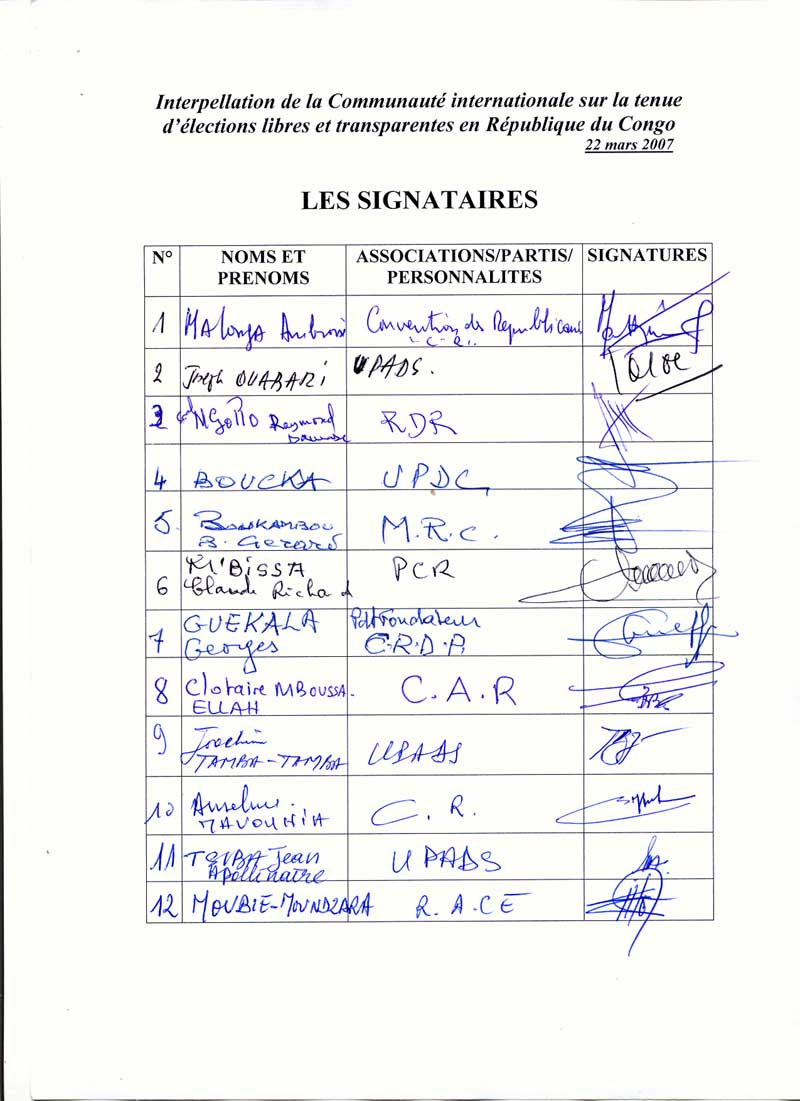 Interpellation de la Communauté internationale sur la tenue
d'élections libres et transparentes en République du Congo
22 mars 2007
LES SIGNATAIRES
N° NOMS ET PRENOMS ASSOCIATIONS/PARTIS/PERSONNALITES SIGNATURES
1 Malonga Ambroise Convention des Républicains "C.R."
2 Joseph OUABARI UPADS.
3 Raymond RDR
4 BOUCKA UPDC
5. B. Gerard M.R.C.
6 M'BISSA Claude Richard PCR
7 GUEKALA Georges Pdt Fondateur C.R.D.P.
8 Clotaire MBOUSSA-ELLAH C.A.R
9 Joachim TAMBA-TAMBA UPADS
10 Anselme MAVOUNIA C.R.
11 TSIBA Jean Apollinaire UPADS
12 MOUBIE-MOUNDZARA R.A.C.E